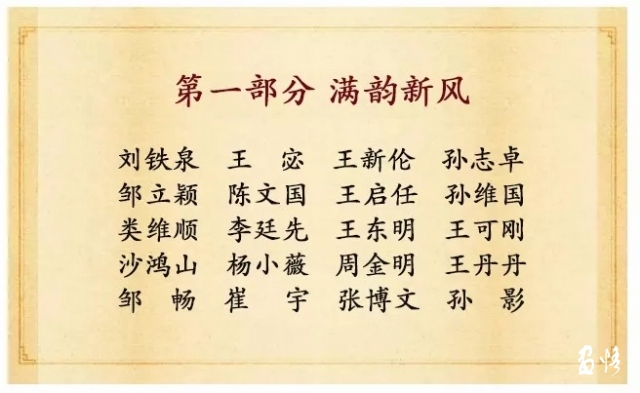 第一部分 满韵新风
刘铁泉 王 宓 王新伦 孙志卓
邹立颖 陈文国 王启任 孙维国
类维顺 李廷先 王东明 王可刚
沙鸿山 杨小薇 周金明 王丹丹
邹 畅 崔 宇 张博文 孙 影